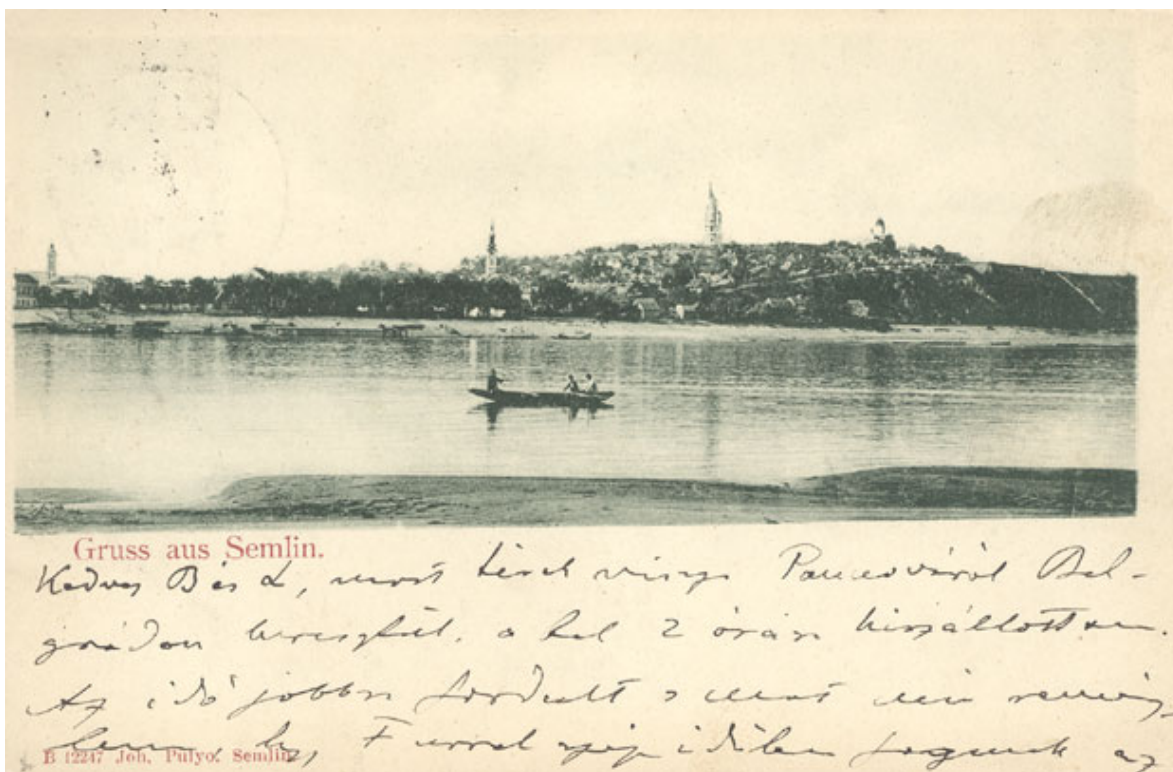 Gruss aus Semlin.
Kedves B és L, most térek vissza Pancsováról Bel-
grádon keresztül, a hol 2 órára kiszállottam.
Az idő jobbra fordult s most már remény
hogy F időben fogunk az
B 12247 Joh. Pulyo. Semlin.